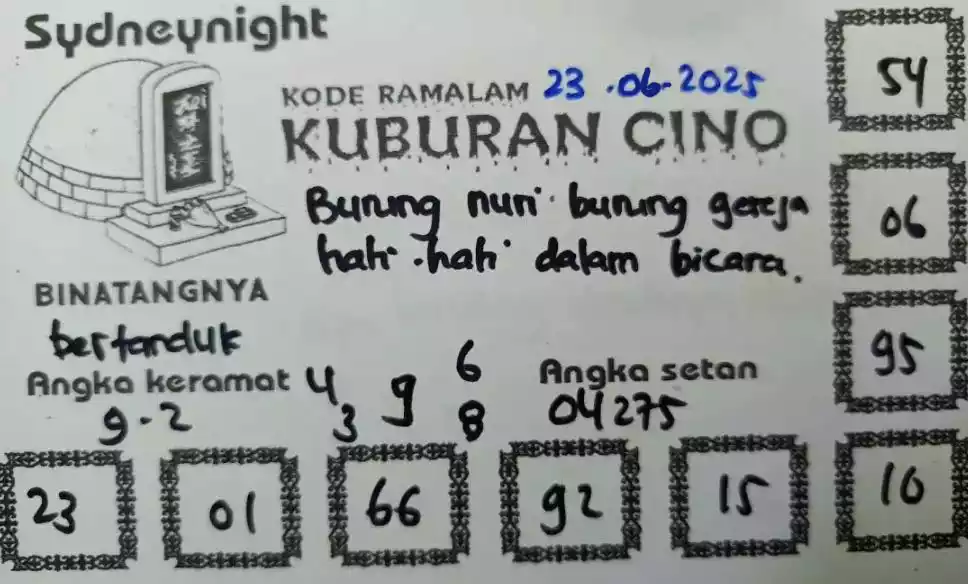 Sydneynight
KODE RAMALAM 23.06-2025
KUBURAN CINO
Burung nuri burung gereja
hati-hati dalam bicara.
BINATANGNYA
bertanduk
Angka keramat
9-2
4 9 6
3 8
Angka setan
04275
54
06
95
10
23
01
66
92
15